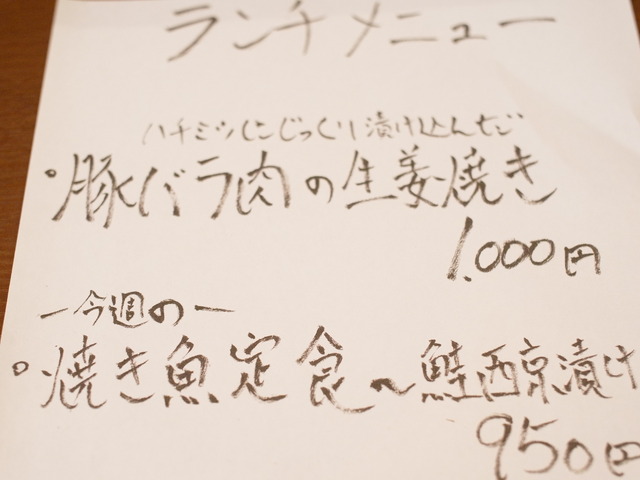 ランチメニュー
ハチミツにじっくり漬け込んだ
°豚バラ肉の生姜焼き
1.000円
ー今週のー
°焼き魚定食〜鮭西京漬け
950円